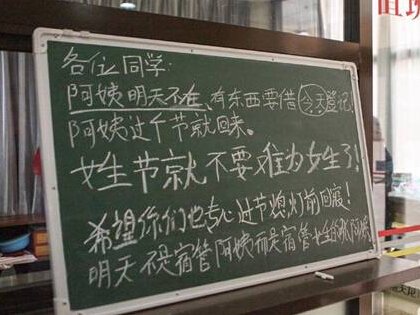 各位同学:
阿姨明天不在,有东西要借今天登记!
阿姨过个节就回来。
女生节就不要难为女生了!
希望你们也专心过节熄灯前回寝!
明天不是宿管阿姨而是宿管女生的张阿姨